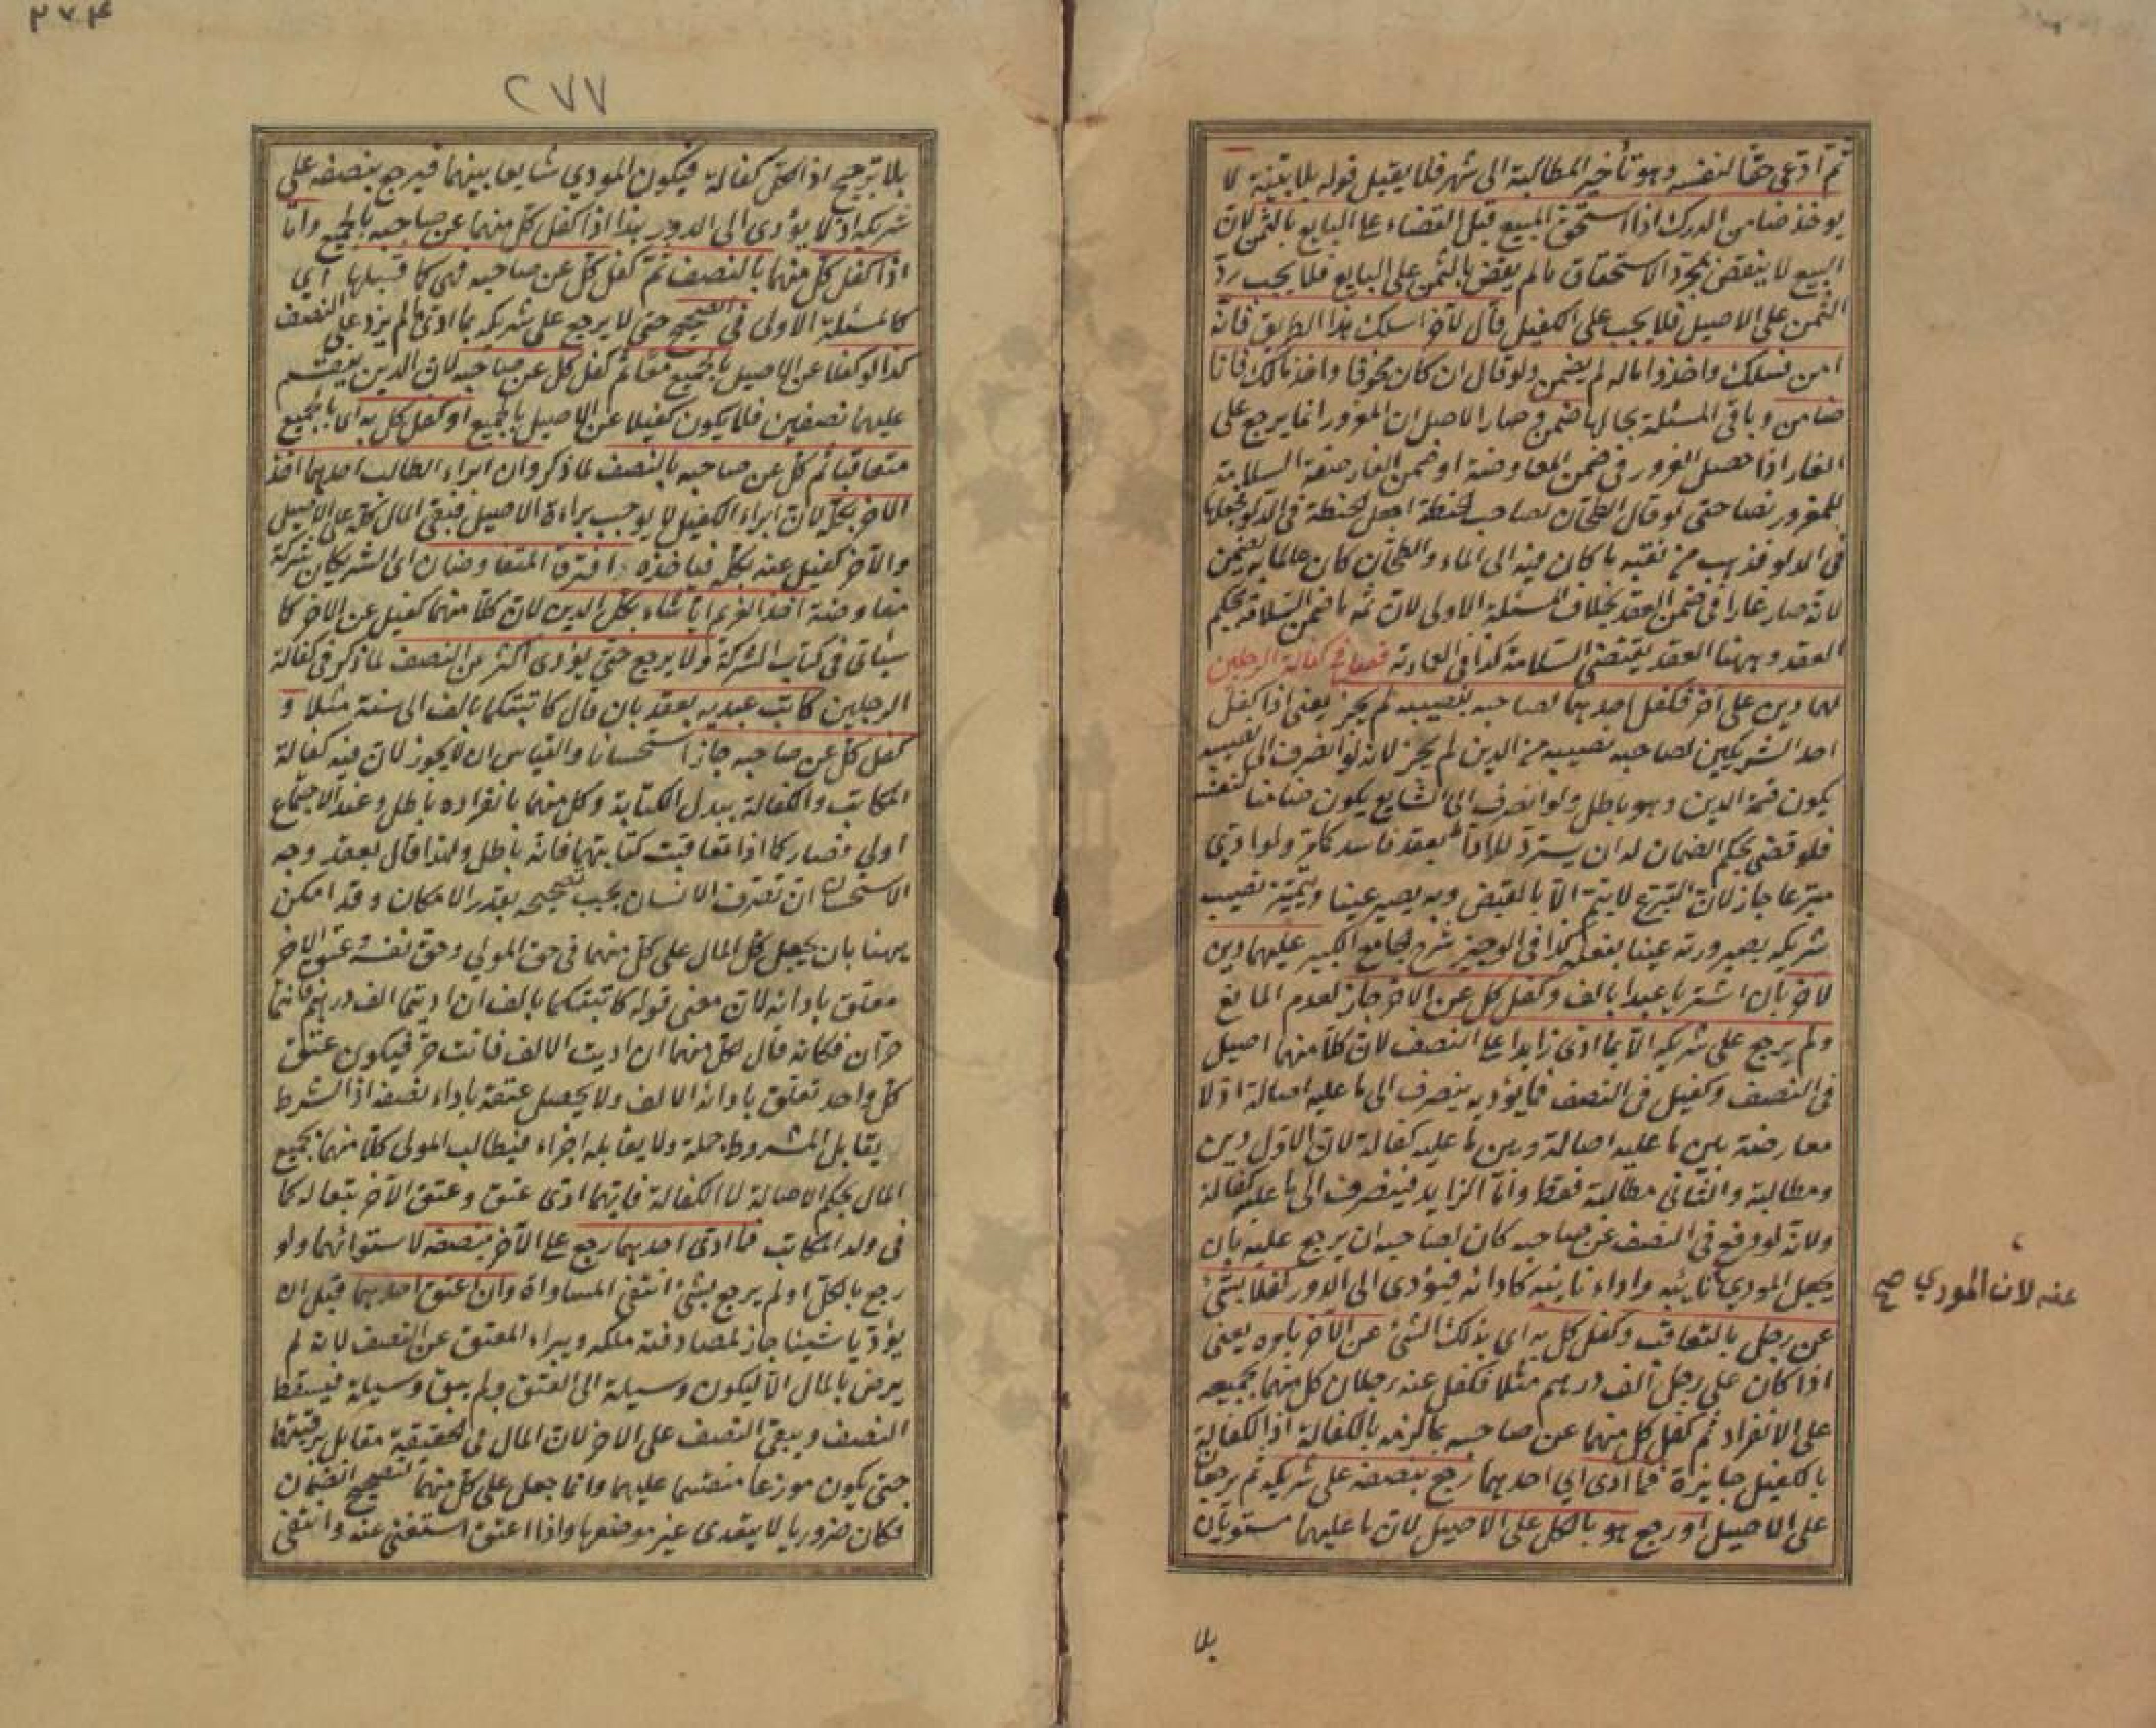 ثم ادعى حقا لنفسه وهو تأخير المطالبة الى شهر فلا يقبل قوله بلا بينة لا
يوخذ ضامن الدرك اذا استحق المبيع قبل القضاء على البايع بالثمن لان
البيع لا ينتقض بمجرد الاستحقاق ما لم يقض بالثمن على البايع فلا يجب رد
الثمن على الاصيل فلا يجب على الكفيل قال لآخر اسلك هذا الطريق فانه
امن فسلك واخذوا ماله لم يضمن ولو قال ان كان مخوفا واخذ مالك فانا
ضامن وباقى المسئلة بحالها ضمن وصار الاصل ان المغرور انما يرجع على
الغار اذا حصل الغرور فى ضمن المعاوضة او ضمن الغار صفة السلامة
للمغرور نصا حتى لو قال الطحان لصاحب الحنطة اجعل الحنطة فى الدلو فجعلها
فى الدلو فذهب من ثقبه ما كان فيه الى الماء والطحان كان عالما به يضمن
لانه صار غارا فى ضمن العقد بخلاف المسئلة الاولى لان ثمة ما ضمن السلامة بحكم
العقد وههنا العقد يقتضى السلامة كذا فى العمادية فصل فى كفالة الرجلين
لهما دين على آخر فكفل احدهما لصاحبه بنصيبه لم يجز يعنى اذا كفل
احد الشريكين لصاحبه نصيبه من الدين لم يجز لانه لو انصرف الى نصيبه
يكون قسمة الدين وهو باطل ولو انصرف الى الشايع يكون ضامنا لنفسه
فلو قضى بحكم الضمان له ان يسترد للاداء بعقد فاسد كما مر ولو ادى
متبرعا جاز لان التبرع لا يتم الا بالقبض وبه يصير عينا ويتميز نصيب
شريكه بصيرورته عينا بفعله كذا فى الوجيز شرح الجامع الكبير عليهما دين
لآخر بان اشتريا عبدا بالف وكفل كل عن الآخر جاز لعدم المانع
ولم يرجع على شريكه الا بما ادى زايدا على النصف لان كلا منهما اصيل
فى النصف وكفيل فى النصف فما يؤديه ينصرف الى ما عليه اصالة اذ لا
معارضة بين ما عليه اصالة وبين ما عليه كفالة لان الاول دين
ومطالبة والثانى مطالبة فقط واما الزايد فينصرف الى ما عليه كفالة
ولانه لو وقع فى النصف عن صاحبه كان لصاحبه ان يرجع عليه بان
يجعل المودي نائبه واداء نايبه كادائه فيؤدى الى الدور كفلا بشئ
عن رجل بالتعاقب وكفل كل به اى بذلك الشئ عن الآخر بامره يعنى
اذا كان على رجل الف درهم مثلا فكفل عنه رجلان كل منهما بجميعه
على الانفراد ثم كفل كل منهما عن صاحبه بما لزمه بالكفالة اذ الكفالة
بالكفيل جايزة فما ادى اي احدهما رجع بنصفه على شريكه ثم يرجعا
على الاصيل او رجع هو بالكل على الاصيل لان ما عليهما مستويان
عنه لان المودي صح
بلا
٢٧٤
٢٧٧
بلا ترجيح اذ الكل كفالة فيكون المودي شايعا بينهما فيرجع بنصفه على
شريكه اذ لا يؤدى الى الدور هذا اذا كفل كل منهما عن صاحبه بالجميع واما
اذا كفل كل منهما بالنصف ثم كفل كل عن صاحبه فهى كما قبلها اى
كالمسئلة الاولى فى الصحيح حتى لا يرجع على شريكه بما ادى ما لم يزد على النصف
كذا لو كفلا عن الاصيل بالجميع معا ثم كفل كل عن صاحبه لان الدين ينقسم
عليهما نصفين فلا يكون كفيلا عن الاصيل بالجميع او كفل كل به اى بالجميع
متعاقبا ثم كل عن صاحبه بالنصف لما ذكر وان ابراء الطالب احدهما اخذ
الآخر بكله لان ابراء الكفيل لا يوجب براءة الاصيل فبقى المال كله على الاصيل
والآخر كفيل عنه بكله فياخذه افترق المتفاوضان اى الشريكان شركة
مفاوضة اخذ الغريم ايا شاء بكل الدين لان كلا منهما كفيل عن الآخر كما
سيأتى فى كتاب الشركة ولا يرجع حتى يؤدى اكثر من النصف لما ذكر فى كفالة
الرجلين كاتب عبديه بعقد بان قال كاتبتكما بالف الى سنة مثلا و
كفل كل عن صاحبه جاز استحسانا والقياس ان لا يجوز لان فيه كفالة
المكاتب والكفالة ببدل الكتابة وكل منهما بانفراده باطل وعند الاجتماع
اولى وصار كما اذا تعاقبت كتابتهما فانه باطل ولهذا قال بعقد وجه
الاستحسان ان تصرف الانسان يجب تصحيحه بقدر الامكان وقد امكن
ههنا بان يجعل كل المال على كل منهما فى حق المولى وحق نفسه عتق الآخر
معلق بادائه لان معنى قوله كاتبتكما بالف ان اديتما الف درهم فانتما
حران فكانه قال لكل منهما ان اديت الالف فانت حر فيكون عتق
كل واحد تعلق بادائه الالف ولا يحصل عتقه باداء نصفه اذ الشرط
يقابل المشروط جملة ولا يقابله اجزاء فيطالب المولى كلا منهما بجميع
المال بحكم الاصالة لا الكفالة فايهما ادى عتق وعتق الآخر تبعا له كما
فى ولد المكاتب فما ادى احدهما رجع على الآخر بنصفه لاستوائهما ولو
رجع بالكل او لم يرجع بشئ انتفى المساواة وان اعتق احدهما قبل ان
يؤديا شيئا جاز لمصادفته ملكه ويبراء المعتق عن النصف لانه لم
يرض بالمال الا ليكون وسيلة الى العتق ولم يبق وسيلة فيسقط
النصف ويبقى النصف على الآخر لان المال فى الحقيقة مقابل برقبتهما
حتى يكون موزعا منقسما عليهما وانما جعل على كل منهما لتصحيح الضمان
فكان ضروريا لا يتعدى غير موضعها واذا اعتق استغنى عنه وانتفى